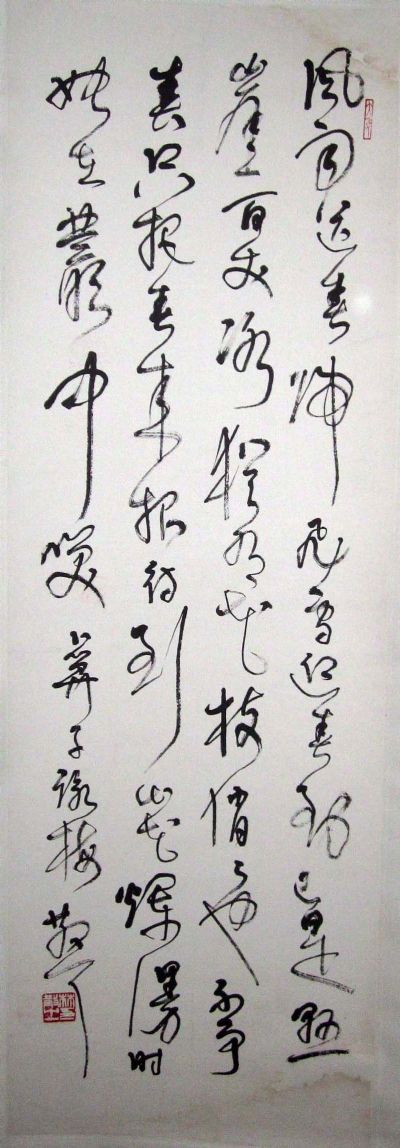 风雨送春归飛雪迎春到已是懸
崖百丈冰猶有花枝俏々也不争
春只把春来报待到山花爛漫时
她在叢中笑 卜算子詠梅